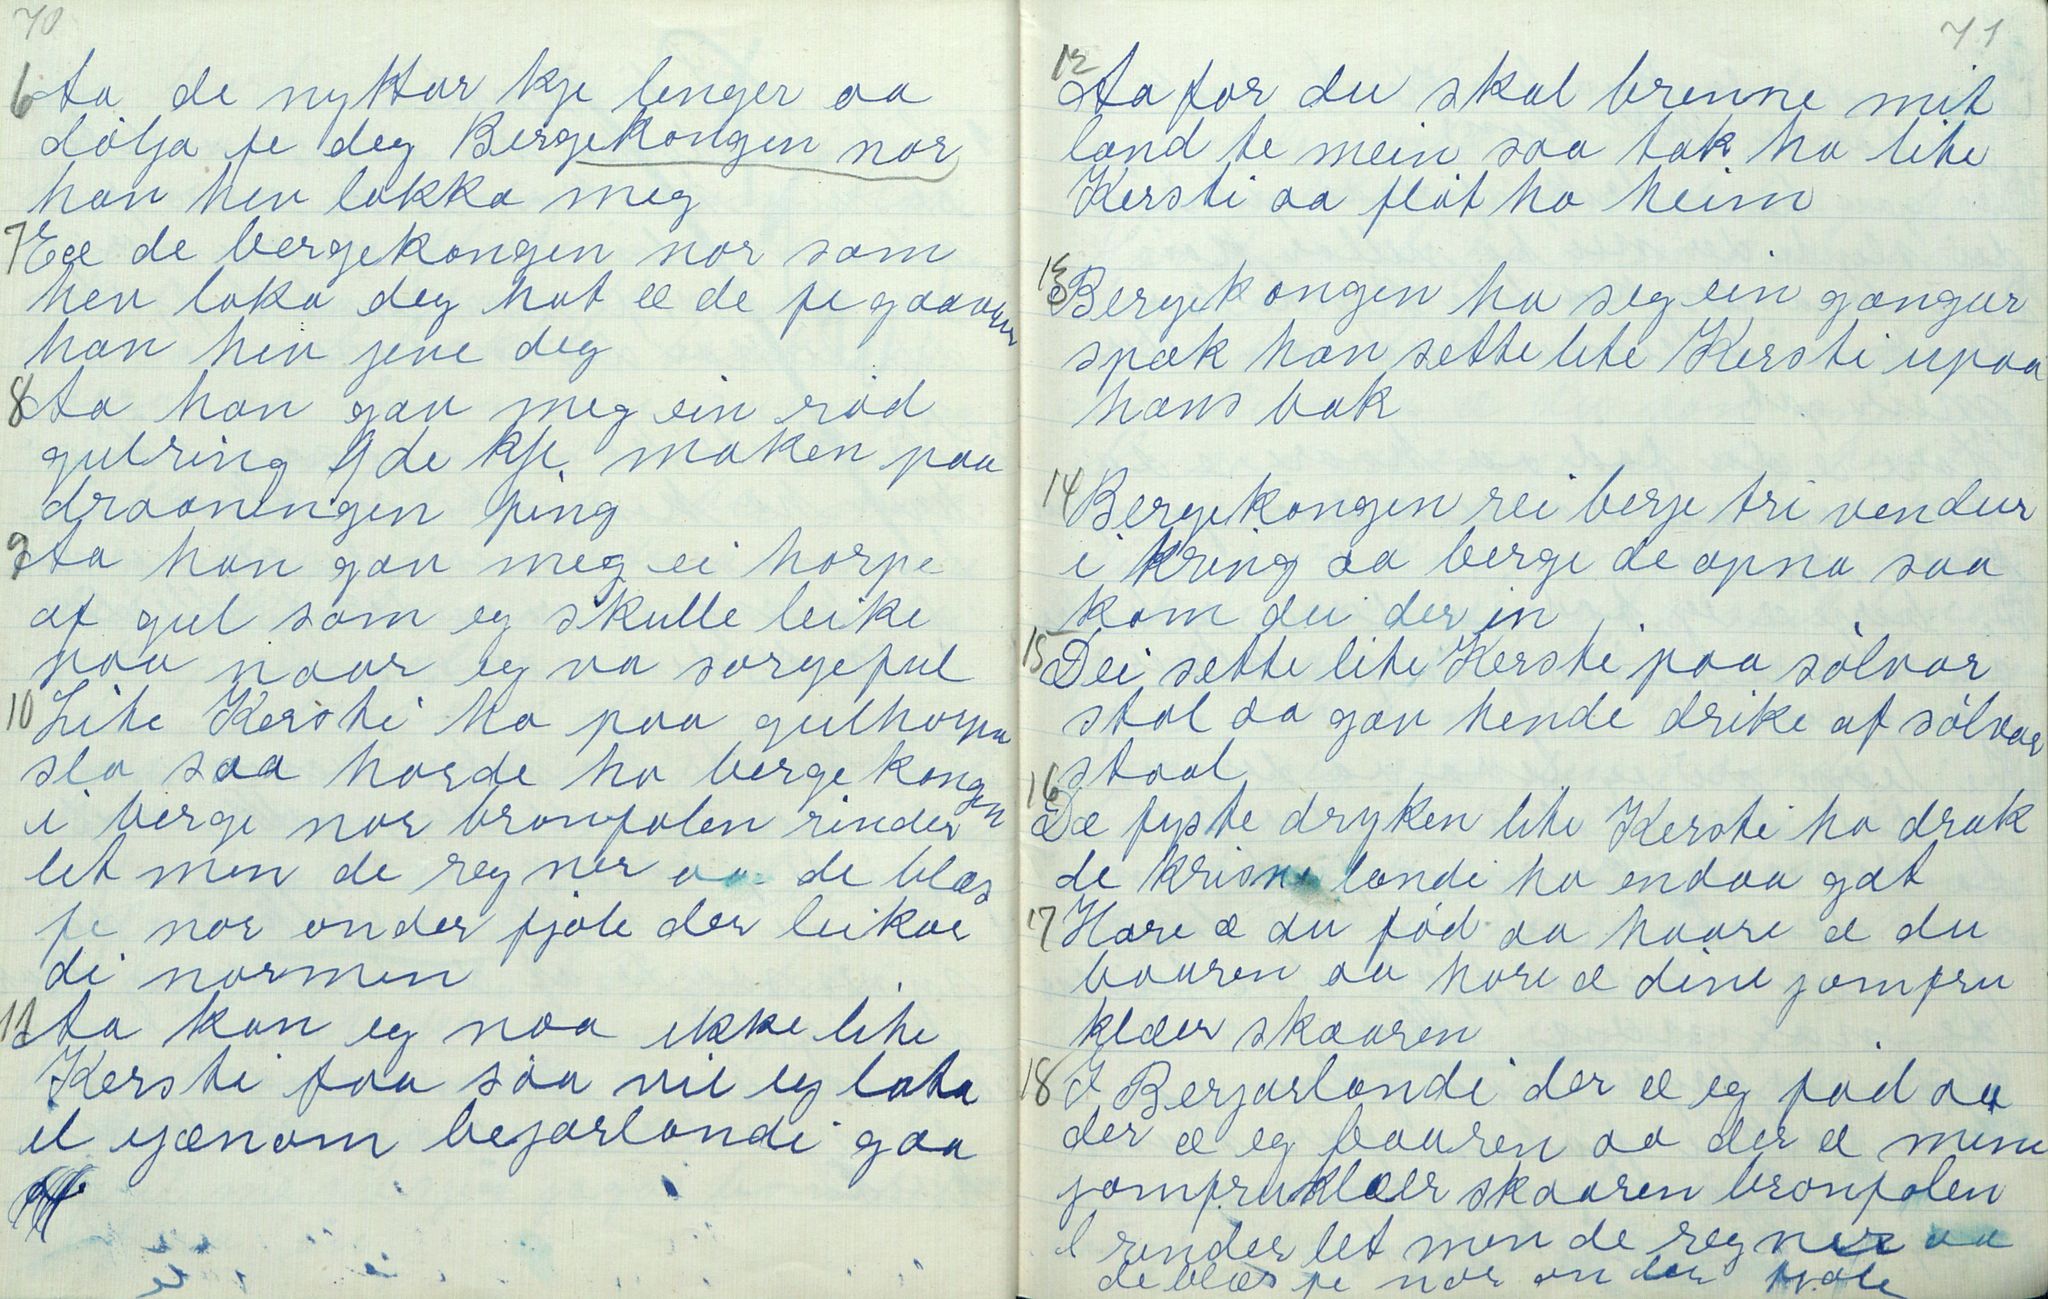 70
6 Aa de nyttar kje lenger aa
dólja fe deg Bergekongen nor
han hev lokka meg
7 Ee de bergekongen nor som
hev loka deg hot æ de fe gaavur
han hev jeve deg
8 Aa han gav meg ein röd
gulring de kje maken paa
draaningen fing
9 Aa han gav meg ei horpe
af gul som eg skulle leike
paa naar eg va sorgeful
10 Lite Kersti ho paa gulhorpa
slo saa horde ho bergekongen
i berge nor bronfolen rinder
let men de regner aa de blæs
fe nor onder fjole der leikar
di normen
11 Aa kan eg naa ikke lite
Kersti faa saa vil eg lata
el gjænom bejarlandi gaa
71
12 Aa for du skal brenne mit
land te mein saa tak ho lite
Kersti aa fløt ho heim
13 Bergekongen ha seg ein gangur
spæk han sette lite Kersti upaa
hans bak
14 Bergekongen rei berje tri vendur
i kring aa berge de opna saa
kom dei der in
15 Dei sette lite Kersti paa sólvar
stol aa gav hende drike af sólvar
staal
16 Dæ fyste dryken lite Kersti ho drak
de krisne landi ho endaa gat
17 Hore æ du fód aa haare æ du
baaren aa hore æ dine jomfru
klæer skaaren
18 I Berjarlandi der æ eg fód aa
der æ eg baaren aa der æ mine
jomfruklæer skaaren bronfolen
render let men de regner aa
de blæs fe nor onder fjole